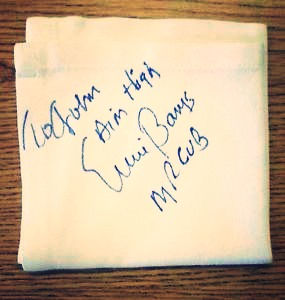 To John
Aim High
Ernie Banks
MR CUB